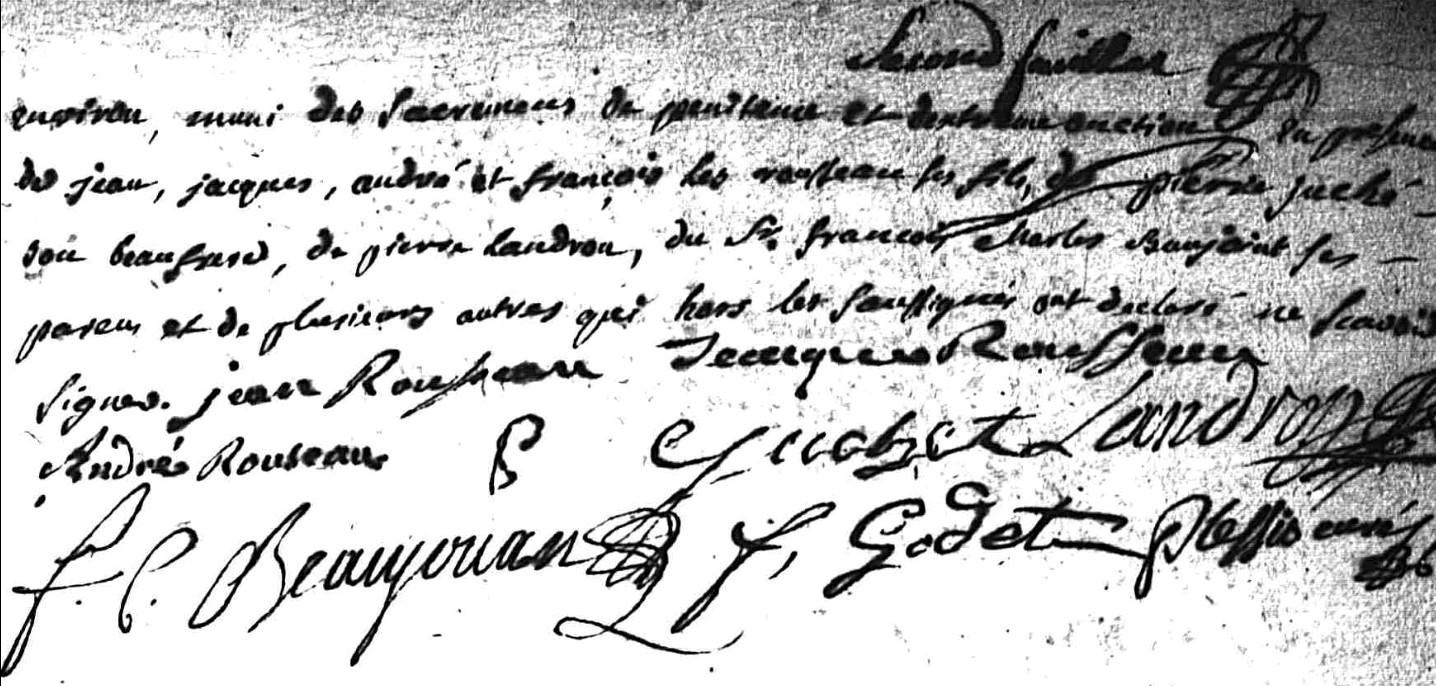 Second feuillet
environ, muni des Sacremens de penitence et d'extreme onction en presence
de jean, jacques, andré et françois les rousseau ses fils, de pierre juché
son beaufrere, de pierre landron, du Sr. françois Charles Baujoint ses
parens et de plusieurs autres qui hors les soussignés ont declaré ne scavoir
signer. jean Rousseau Jacques Rousseau
André Rouseau P Landron
f. C. Beaujouan f, Godet Plessis curé